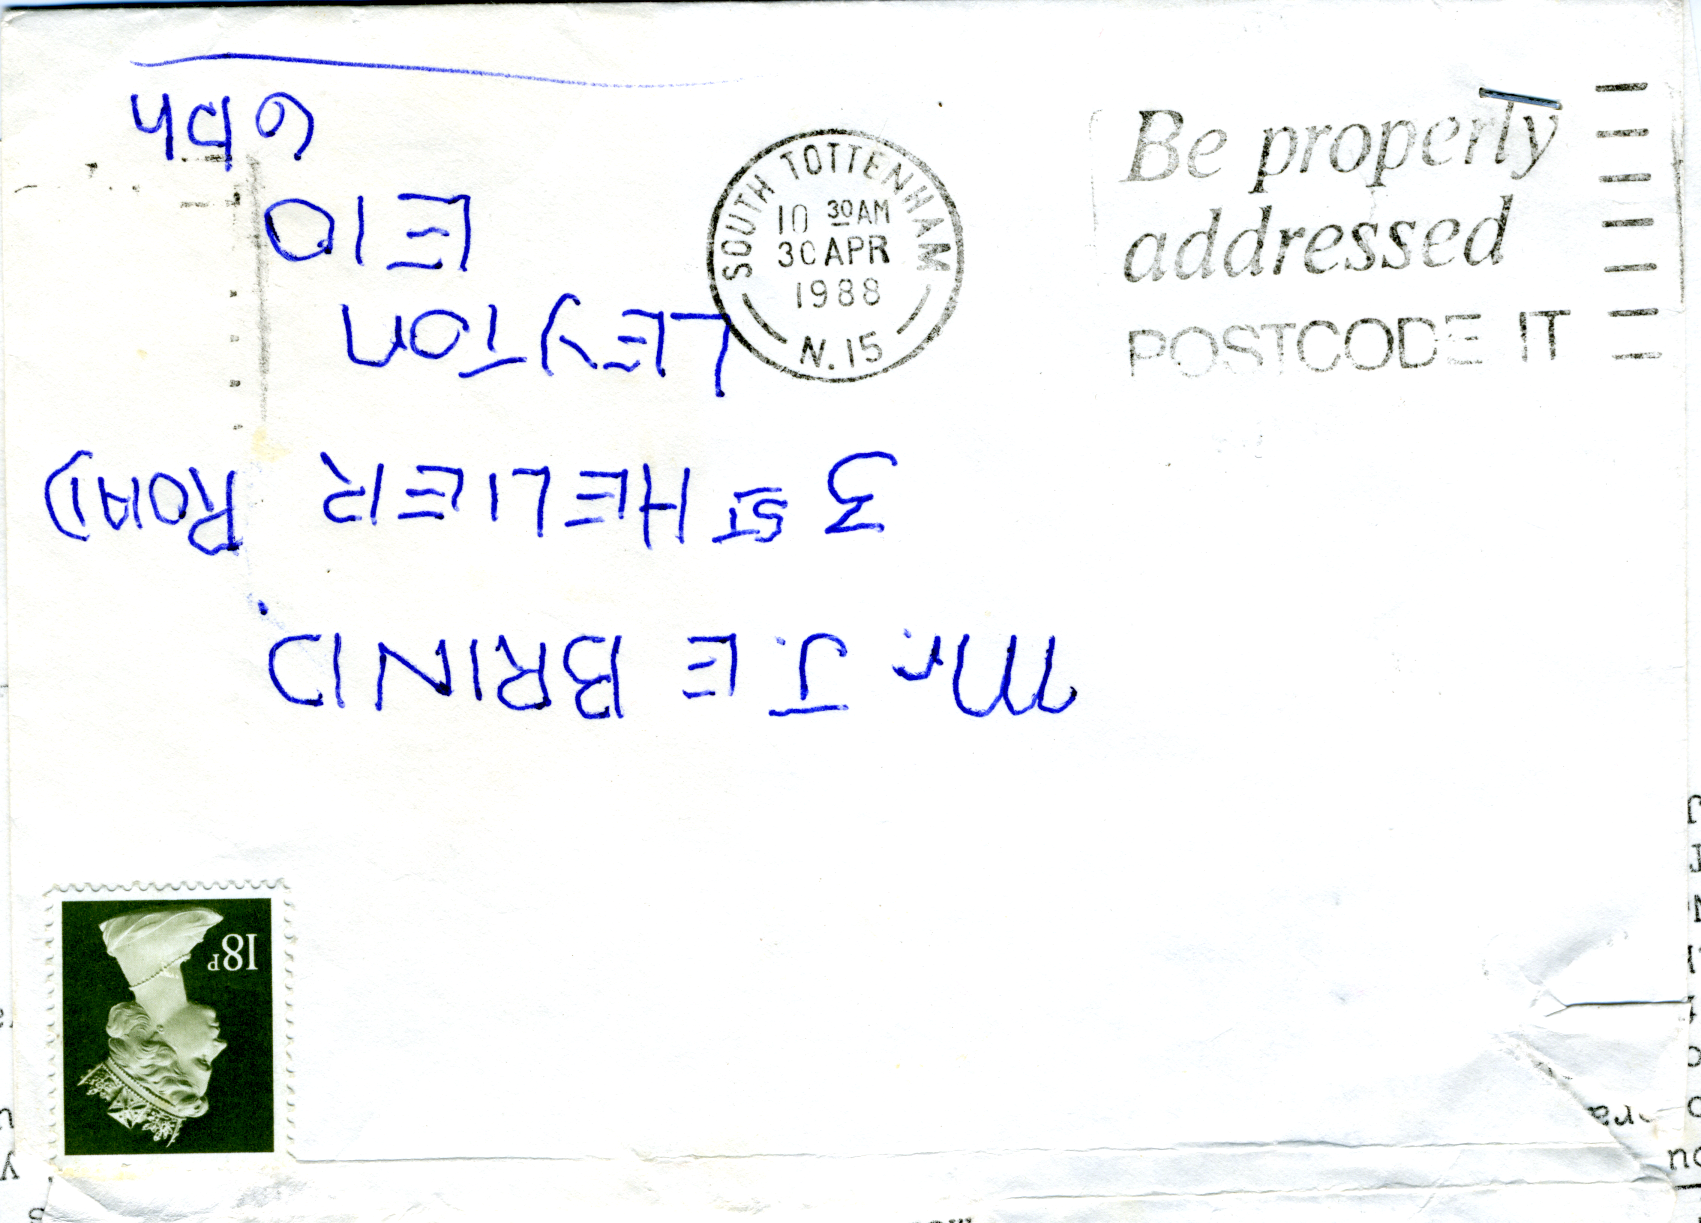 Mr. J. E BRIND.
3 ST HELIER ROAD
LEYTON
E10
6BH
SOUTH TOTTENHAM
10 30AM
30 APR
1988
N.15
Be properly
addressed
POSTCODE IT
18P